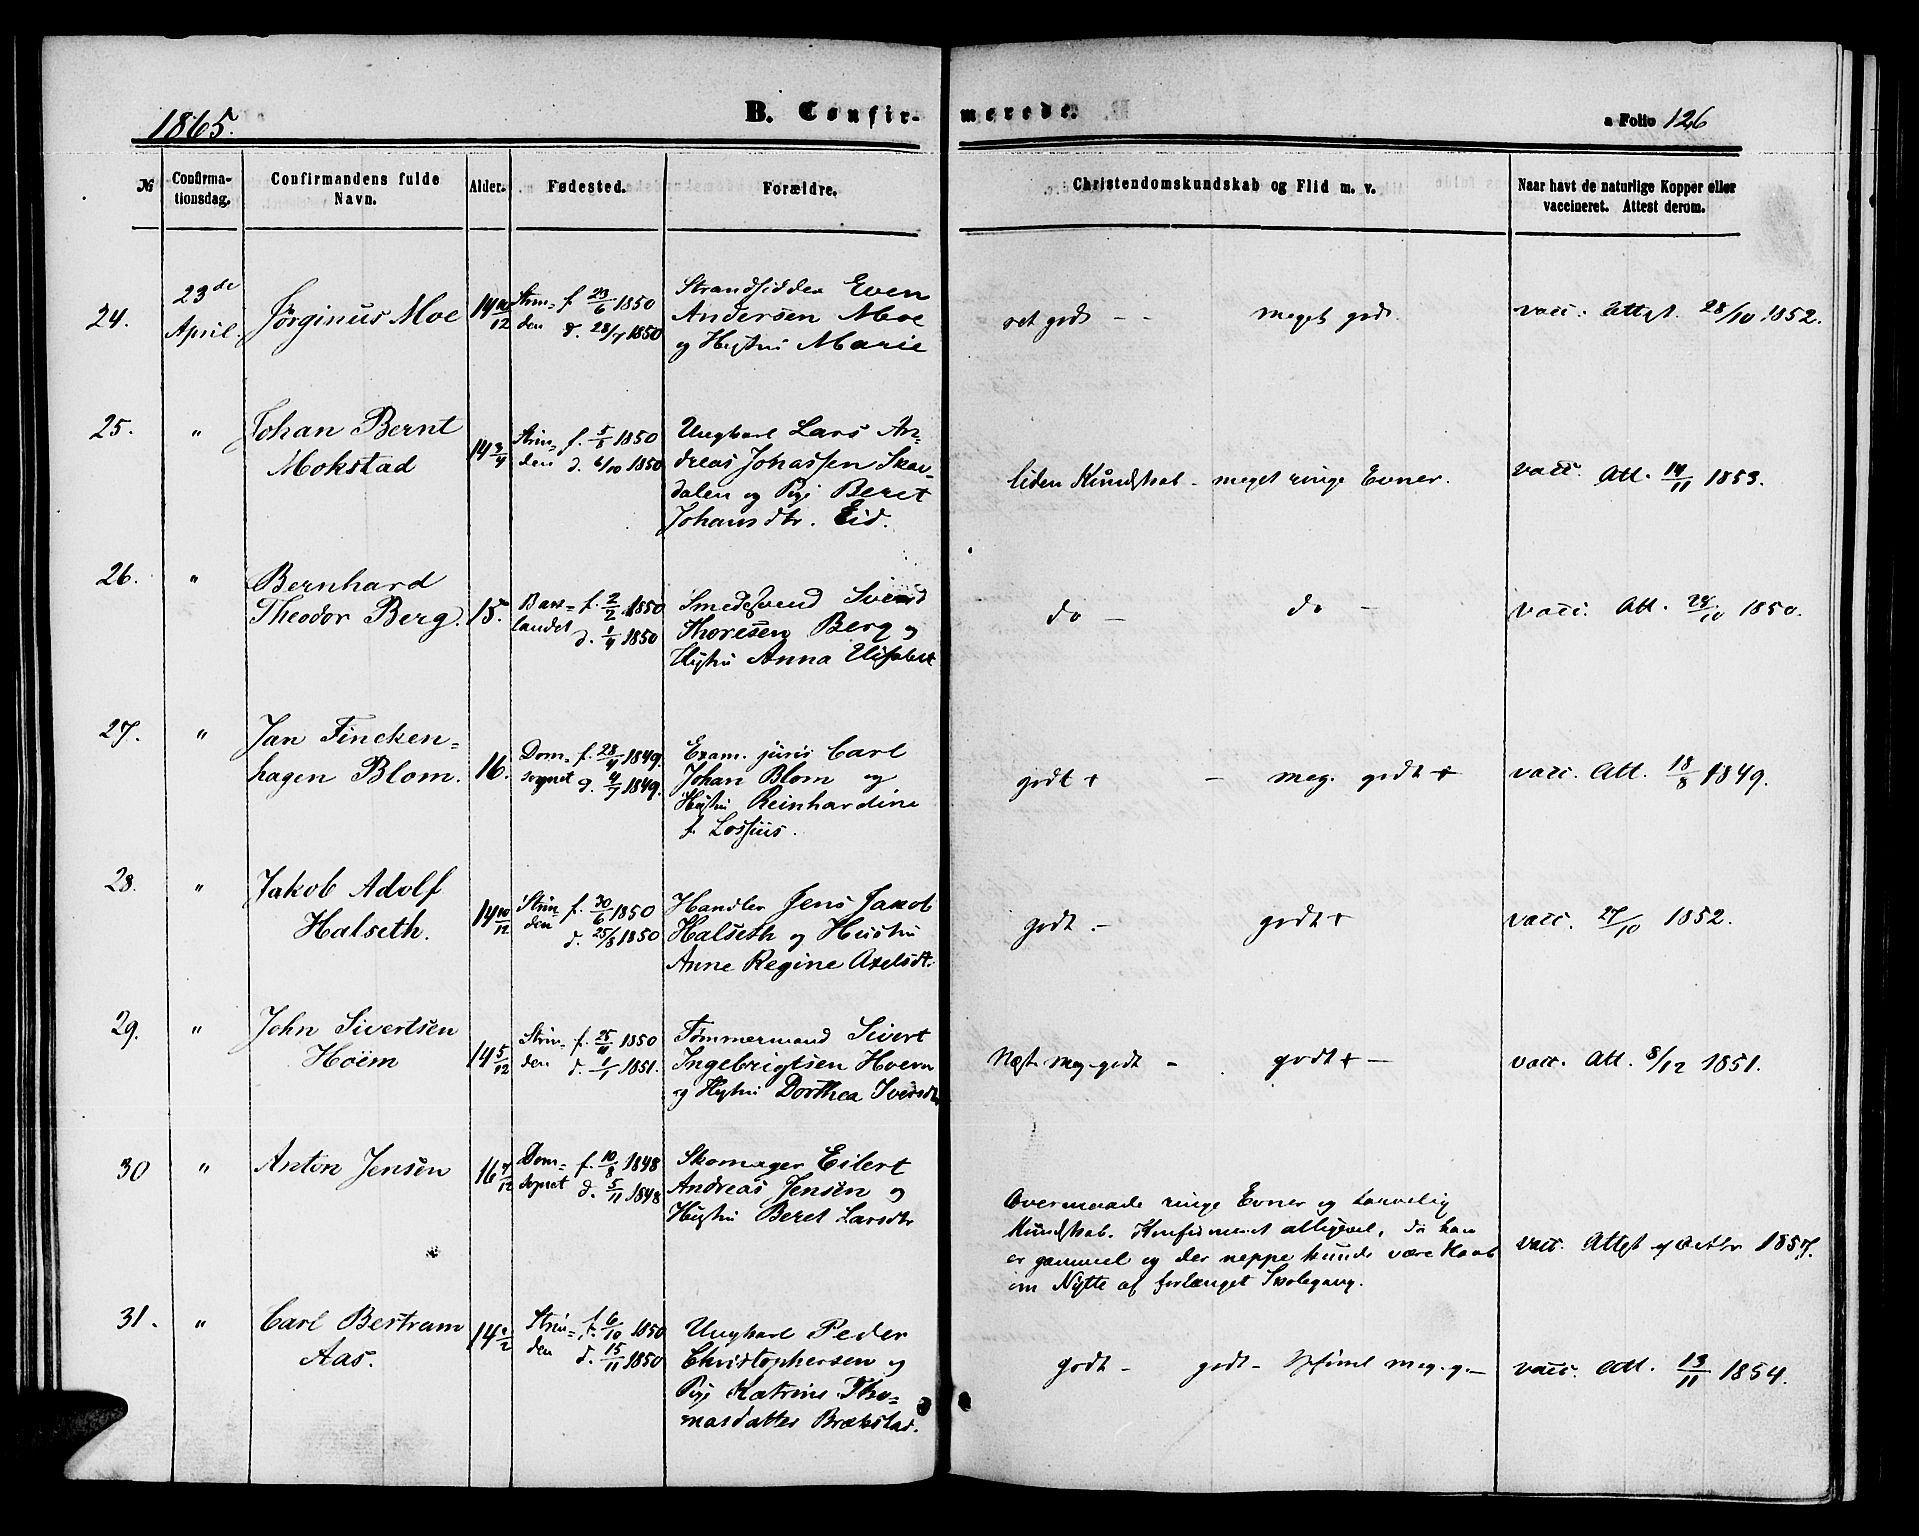 1865.
B. Confir-
merede.
a Folio 126
№
Confirma-
tionsdag.
Confirmandens fulde
Navn.
Alder.
Fødested.
Forældre.
Christendomskundskab og Flid m. v.
Naar havt de naturlige Kopper eller
vaccineret. Attest derom.
24.
23de
April.
Jørginus Moe
14 10/12
Strin-
den
f. 23/6 1850
d. 28/7 1850
Strandsidder Even
Andersen Moe
og Hustru Marie
ret godt - - meget godt
vacc. Attest. 28/10 1852.
25.
"
Johan Bernt
Mokstad
14 3/4
Strin-
den
f. 5/8 1850
d. 6/10 1850
Ungkarl Lars An-
dreas Johassen Skav-
dalen og Pige Beret
Johansdtr. Eid.
liden Kundskab - meget ringe Evner.
vacc. Att. 14/11 1853.
26.
"
Bernhard
Theodor Berg.
15.
Bak-
landet
f. 2/2 1850
d. 1/4 1850
Smedesvend Svend
Thoresen Berg og
Hustru Anna Elisabet
do - do -
vacc. Att. 24/10 1850.
27.
"
Jan Fincken-
hagen Blom.
16.
Dom-
sognet
f. 28/4 1849.
d. 4/7 1849.
Exam. juris Carl
Johan Blom og
Hustru Reinhardine
f. Lossius.
godt + - meg. godt +
vacc. Att. 18/8 1849.
28.
"
Jakob Adolf
Halseth.
14 10/12
Strin-
den
f. 30/6 1850
d. 25/8 1850
Handler Jens Jakob
Halseth og Hustru
Anne Regine Axelsdt.
godt - godt +
vacc. 27/10 1852.
29.
"
John Sivertsen
Hoëm
14 5/12
Strin-
den
f. 25/11 1850
d. 1/1 1851.
Tømmermand Sivert
Ingebrigtsen Hoem
og Hustru Dorthea Iversdtr
Næst meg. godt - godt + -
vacc. Att. 8/12 1851.
30
"
Anton Jensen
16 7/12
Dom-
sognet
f. 10/8 1848
d. 5/11 1848
Skomager Eilert
Andreas Jensen og
Hustru Beret Larsdtr
Overmaade ringe Evner og tarvelig
Kundskab. Konfirmeret alligevel, da han
er gammel og der neppe kunde være Haab
om Nytte af forlænget Skolegang.
vacc. Attest af Octbr 1857.
31.
"
Carl Bertram
Aas.
14 1/2
Strin-
den
f. 6/10 1850
d. 15/11 1850
Ungkarl Peder
Christophersen og
Pige Katrine Tho-
masdatter Brækstad.
godt - godt - Opførsel meg. g. -
vacc. Att. 13/11 1854.